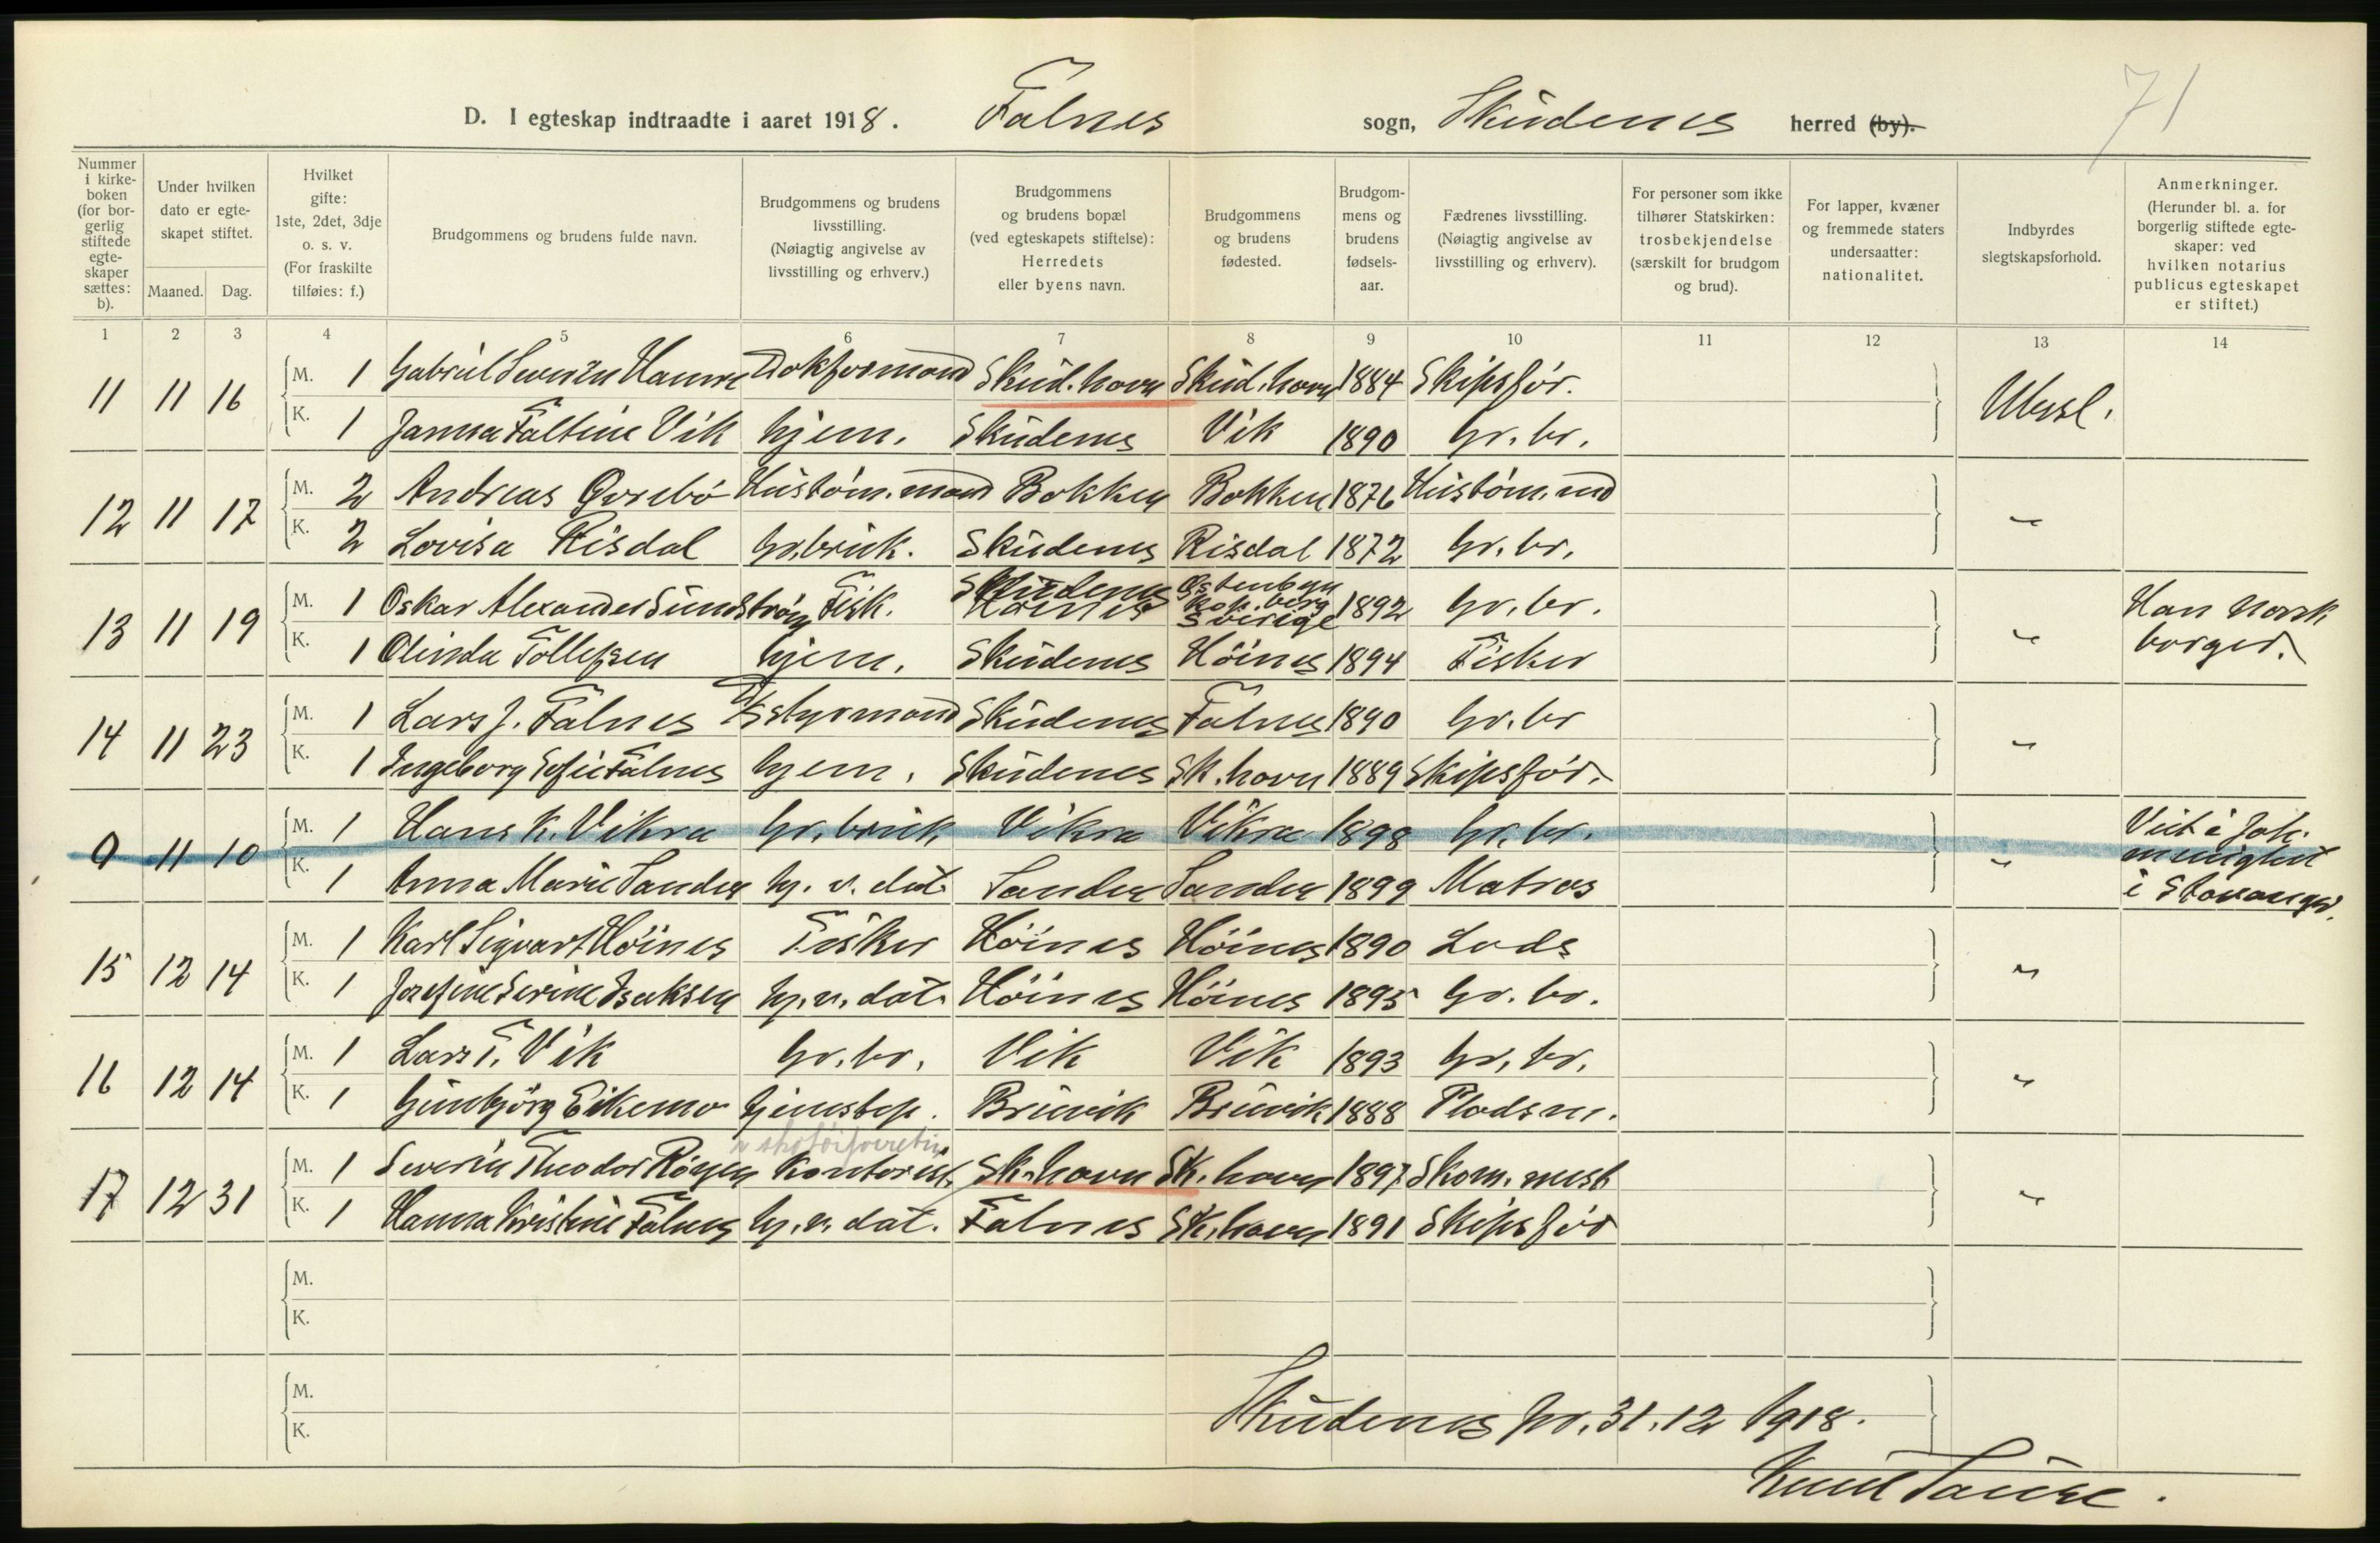 71
D. I egteskap indtraadte i aaret 1918. Falnes sogn, Skudenes herred (by).
Nummer i kirkeboken (for borgerlig stiftede egteskaper sættes: b).
Under hvilken dato er egteskapet stiftet.
Maaned. Dag.
Hvilket gifte: 1ste, 2det, 3dje o. s. v. (For fraskilte tilføies: f.)
Brudgommens og brudens fulde navn.
Brudgommens og brudens livsstilling. (Nøiagtig angivelse av livsstilling og erhverv.)
Brudgommens og brudens bopæl (ved egteskapets stiftelse): Herredets eller byens navn.
Brudgommens og brudens fødested.
Brudgommens og brudens fødselsaar.
Fædrenes livsstilling. (Nøiagtig angivelse av livsstilling og erhverv).
For personer som ikke tilhører Statskirken: trosbekjendelse (særskilt for brudgom og brud).
For lapper, kvæner og fremmede staters undersaatter: nationalitet.
Indbyrdes slegtskapsforhold.
Anmerkninger. (Herunder bl. a. for borgerlig stiftede egteskaper: ved hvilken notarius publicus egteskapet er stiftet.)
1 2 3 4 5 6 7 8 9 10 11 12 13 14
11 11 16 M. 1 Gabriel Hamre Dokformand Skud.havn Skud.havn 1884 Skipsför. Ubesl.
K. 1 Janna Faltine Vik hjem. Skudenes Vik 1890 Gr. br.
12 11 17 M. 2 Andreas Gorebö Hustöm.mand Bokken Bokken 1876 Hustöm.md "
K. 2 Lovisa Risdal Gr.bruk. Skudenes Risdal 1872 Gr. br.
13 11 19 M. 1 Oskar Alexander Sundström Fisk. Skudenes Höines Sverige 1892 Gr. br. " Han norsk borger.
K. 1 Olinda Tollefsen hjem. Skudenes Höines 1894 Fisker
14 11 23 M. 1 Lars J. Falnes styrmand Skudenes Falnes 1890 Gr. br "
K. 1 Ingeborg Sofie Falnes hjem. Skudenes Sk.havn 1889 Skipsför.
9 11 10 M. 1 Hans K. Vikra Gr. bruk. Vikra Vikra 1898 Gr. br. " Viet i Joh. menighet i Stavanger.
K. 1 Anna Marie Sanden hj. v. dat. Sanden Sanden 1899 Matros
15 12 14 M. 1 Karl Sigvart Höines Fisker Höines Höines 1890 Lods "
K. 1 Josefine Serine Isaksen hj. v. dat. Höines Höines 1895 Gr. br.
16 12 14 M. 1 Lars T. Vik Gr. br. Vik Vik 1893 Gr. br. "
K. 1 Gunbjörg Eikemo Bruvik Bruvik 1888 Pladsm.
17 12 31 M. 1 Severin Theodor Kontorist Sk.havn Sk.havn 1897 Skom. mest "
K. 1 Hanna Kristine Falnes hj. v. dat. Falnes Sk.havn 1891 Skipsför
M.
K.
M.
K.
Skudenes pr. 31.12 1918.